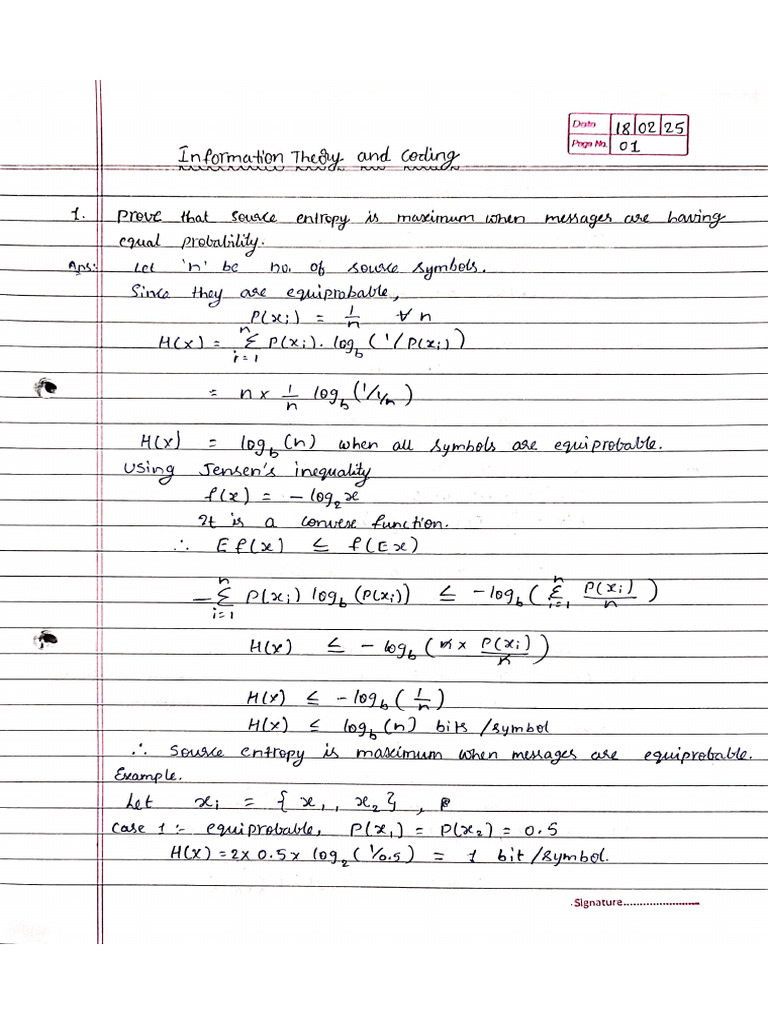 Date 18 02 25
Page No. 01
Information Theory and Coding
1. Prove that source entropy is maximum when messages are having
equal probability.
Ans: Let 'n' be no. of source symbols.
Since they are equiprobable,
P(xi) = 1/n ∀ n
H(x) = Σ_{i=1}^{n} P(xi). log_b (1/P(xi))
= n × 1/n log_b (1/1/n)
H(x) = log_b (n) when all symbols are equiprobable.
Using Jensen's inequality
f(x) = - log_2 x
It is a convexe function.
∴ E f(x) ≤ f(Ex)
- Σ_{i=1}^{n} P(xi) log_b (P(xi)) ≤ - log_b ( Σ_{i=1}^{n} P(xi)/n )
H(x) ≤ - log_b ( n × P(xi)/n )
H(x) ≤ - log_b ( 1/n )
H(x) ≤ log_b (n) bits /symbol
∴ Source entropy is maximum when messages are equiprobable.
Example.
Let xi = { x1, x2 }, P
Case 1 :- equiprobable, P(x1) = P(x2) = 0.5
H(x) = 2 × 0.5 × log_2 ( 1/0.5 ) = 1 bit /symbol.
Signature........................